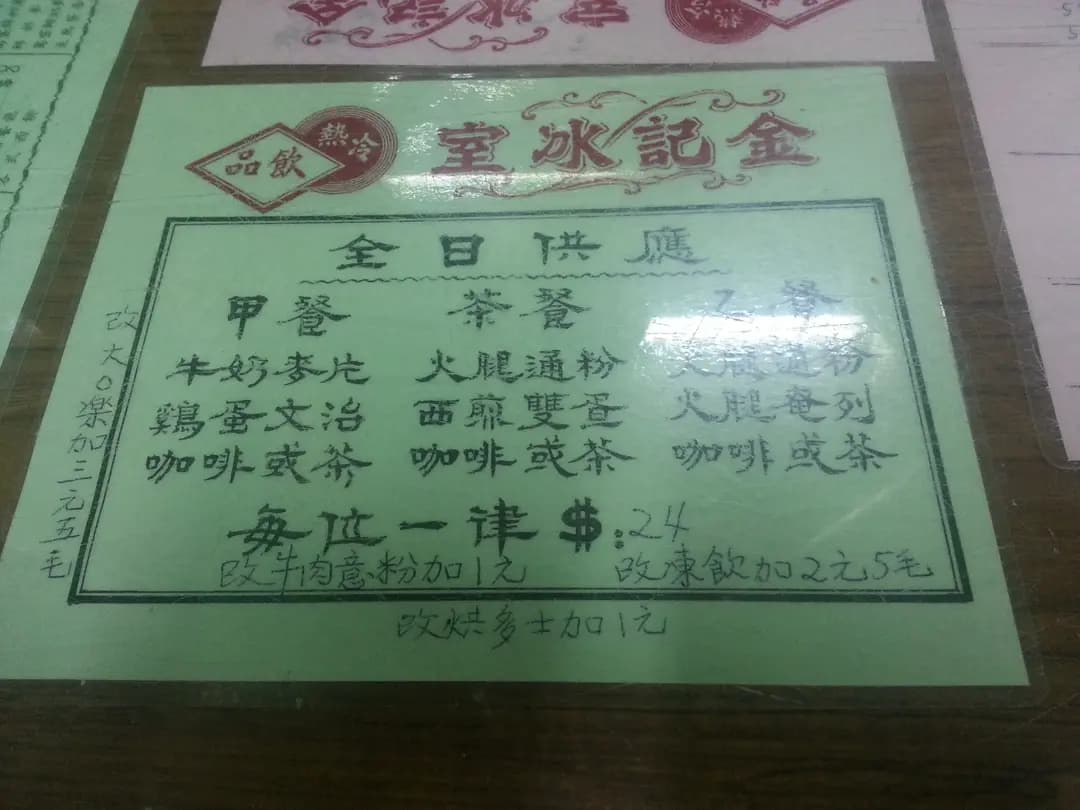 金記冰室
冷熱
飲品
全日供應
甲餐 茶餐 乙餐
牛奶麥片 火腿通粉 火腿通粉
鷄蛋文治 西煎雙蛋 火腿奄列
咖啡或茶 咖啡或茶 咖啡或茶
每位一律 $:24
改牛肉意粉加1元 改凍飲加2元5毛
改烘多士加1元
改大可樂加三元五毛
金記冰室
冷熱